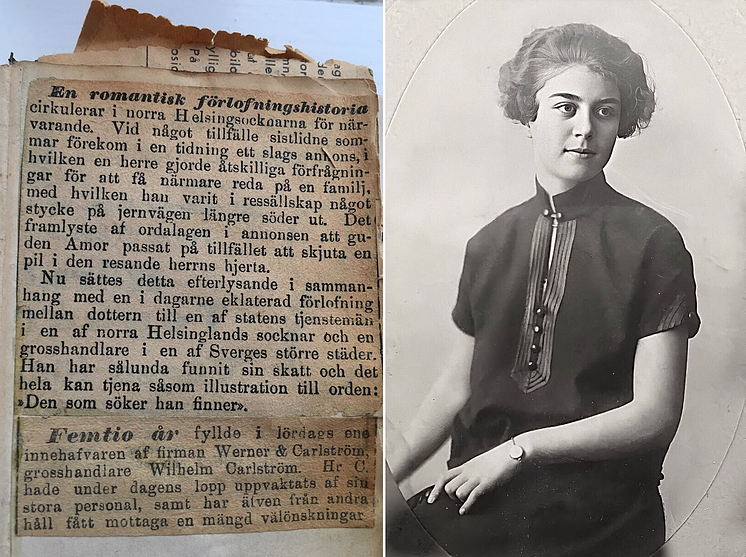 En romantisk förlofningshistoria
cirkulerar i norra Helsingsocknarna för när-
varande. Vid något tillfälle sistlidne som-
mar förekom i en tidning ett slags annons, i
hvilken en herre gjorde åtskilliga förfrågnin-
gar för att få närmare reda på en familj,
med hvilken han varit i ressällskap något
stycke på jernvägen längre söder ut. Det
framlyste af ordalagen i annonsen att gu-
den Amor passat på tillfället att skjuta en
pil i den resande herrns hjerta.
Nu sättes detta efterlysande i samman-
hang med en i dagarne eklaterad förlofning
mellan dottern till en af statens tjenstemän
i en af norra Helsinglands socknar och en
grosshandlare i en af Sverges större städer.
Han har sålunda funnit sin skatt och det
hela kan tjena såsom illustration till orden:
»Den som söker han finner».
Femtio år fyllde i lördags ene
innehafvaren af firman Werner & Carlström,
grosshandlare Wilhelm Carlström. Hr C.
hade under dagens lopp uppvaktats af sin
stora personal, samt har äfven från andra
håll fått mottaga en mängd välönskningar